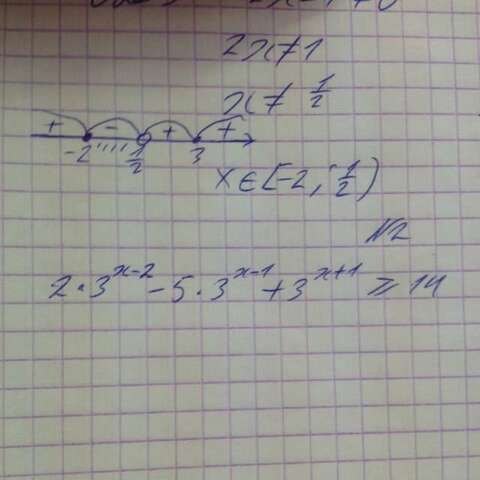 2x≠1
x≠ 1/2
+ - + +
-2 1/2 3
x∈[-2; 1/2)
N2
2·3^{x-2} - 5·3^{x-1} + 3^{x+1} ≥ 14